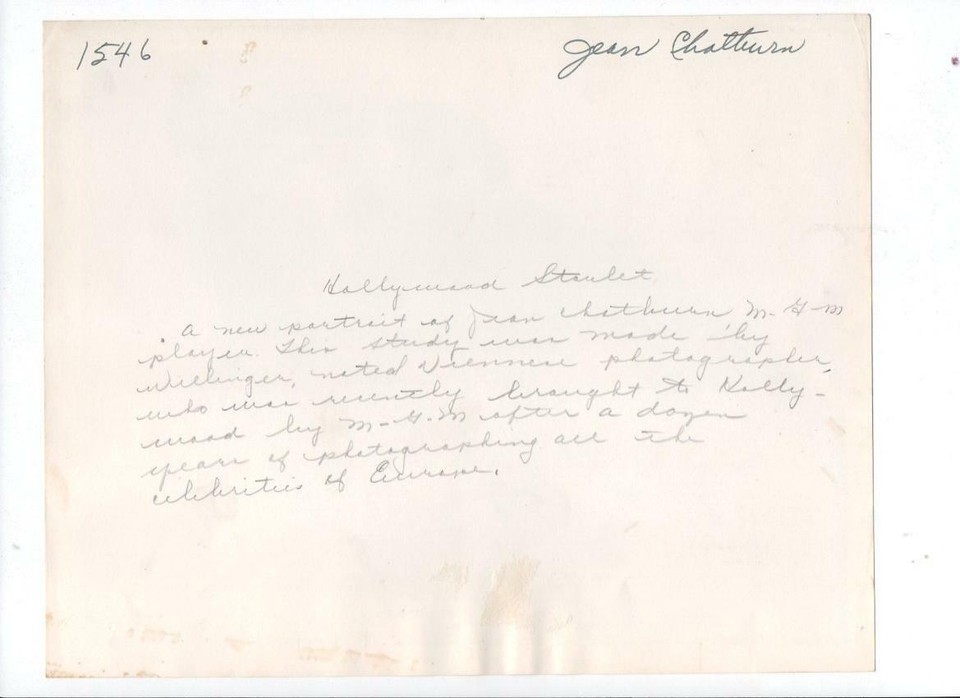 1546
Jean Chatburn
Hollywood Starlet
A new portrait of Jean Chatburn M-G-M
player. This study was made by
Willinger, noted Viennese photographer,
who was recently brought to Holly-
wood by M-G-M after a dozen
years of photographing all the
celebrities of Europe.